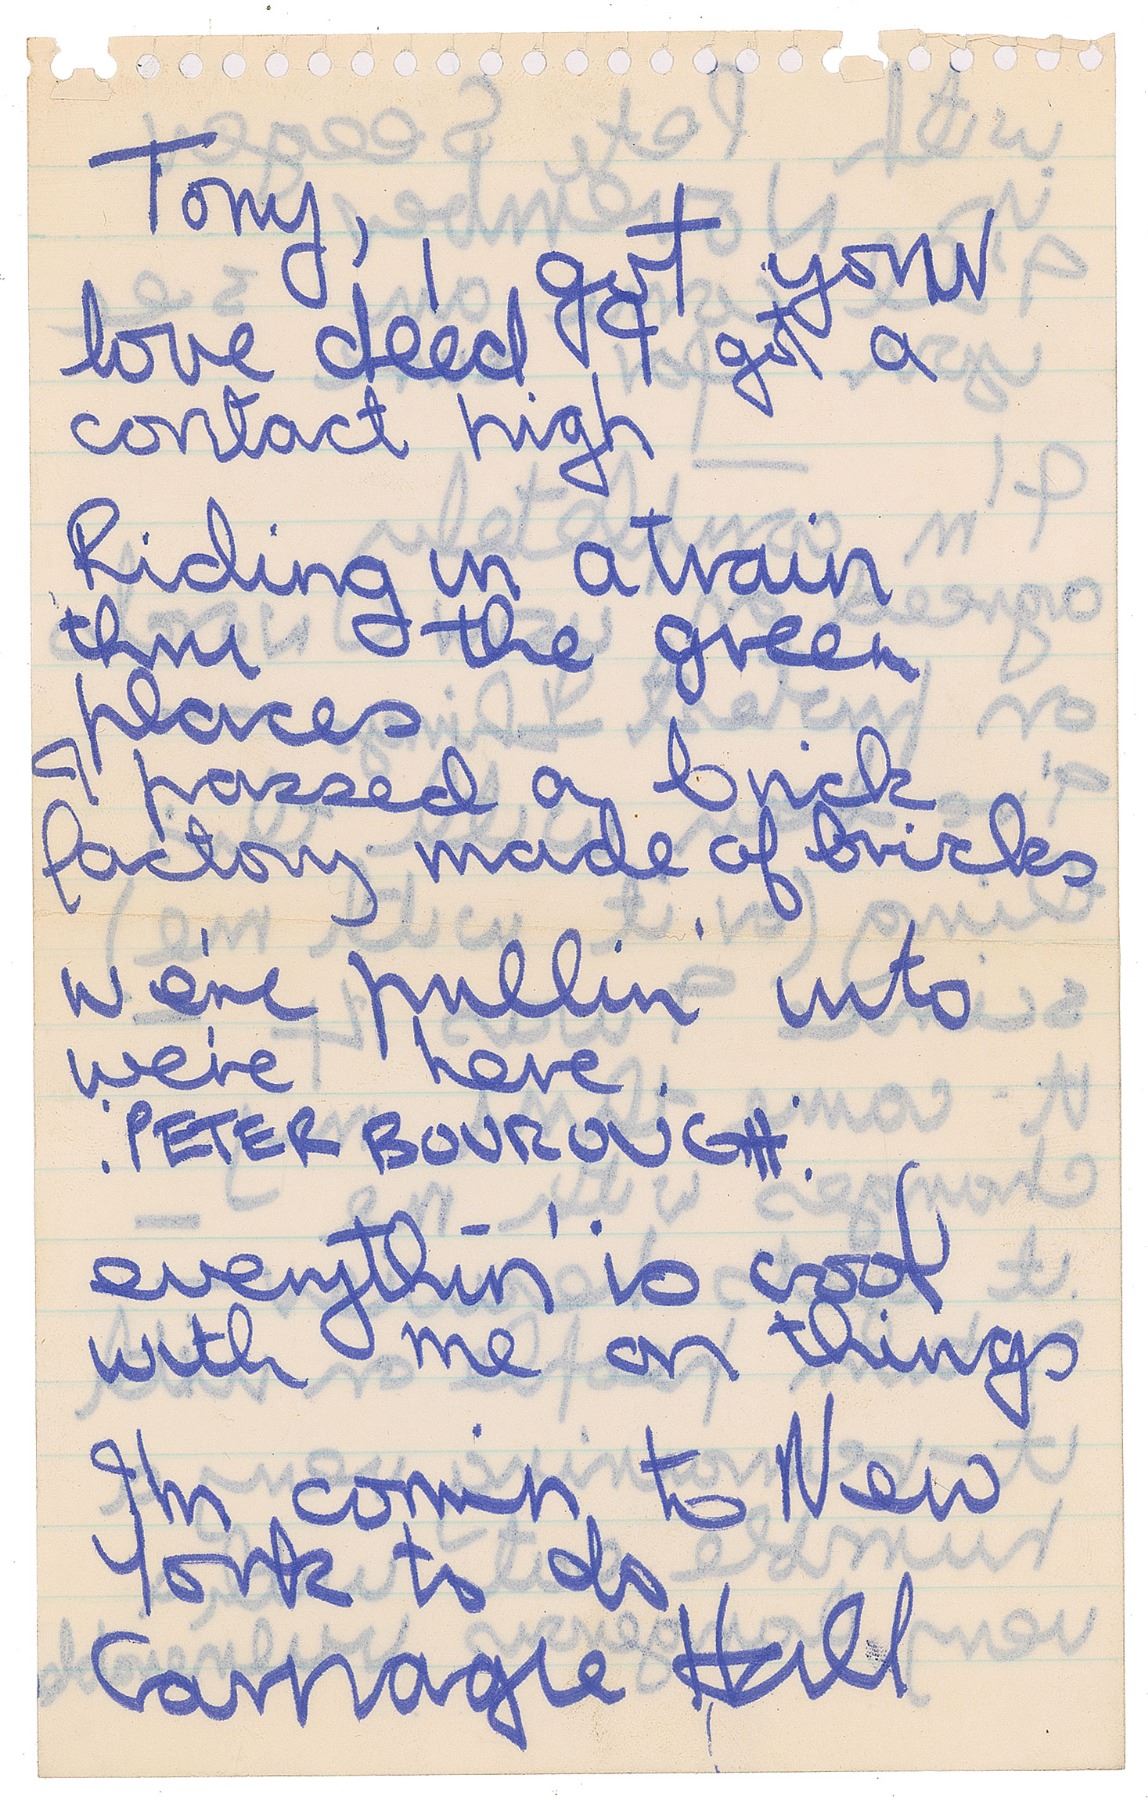 Tony,
I got your
love deed & got a
contact high
Riding in a train
thru the green
places
I passed a brick
factory made of bricks
we're pullin' into
we're here.
'PETER BOUROUGH'.
everythin' is cool
with me on things
I'm comin to New
York to do
Carnagie Hall